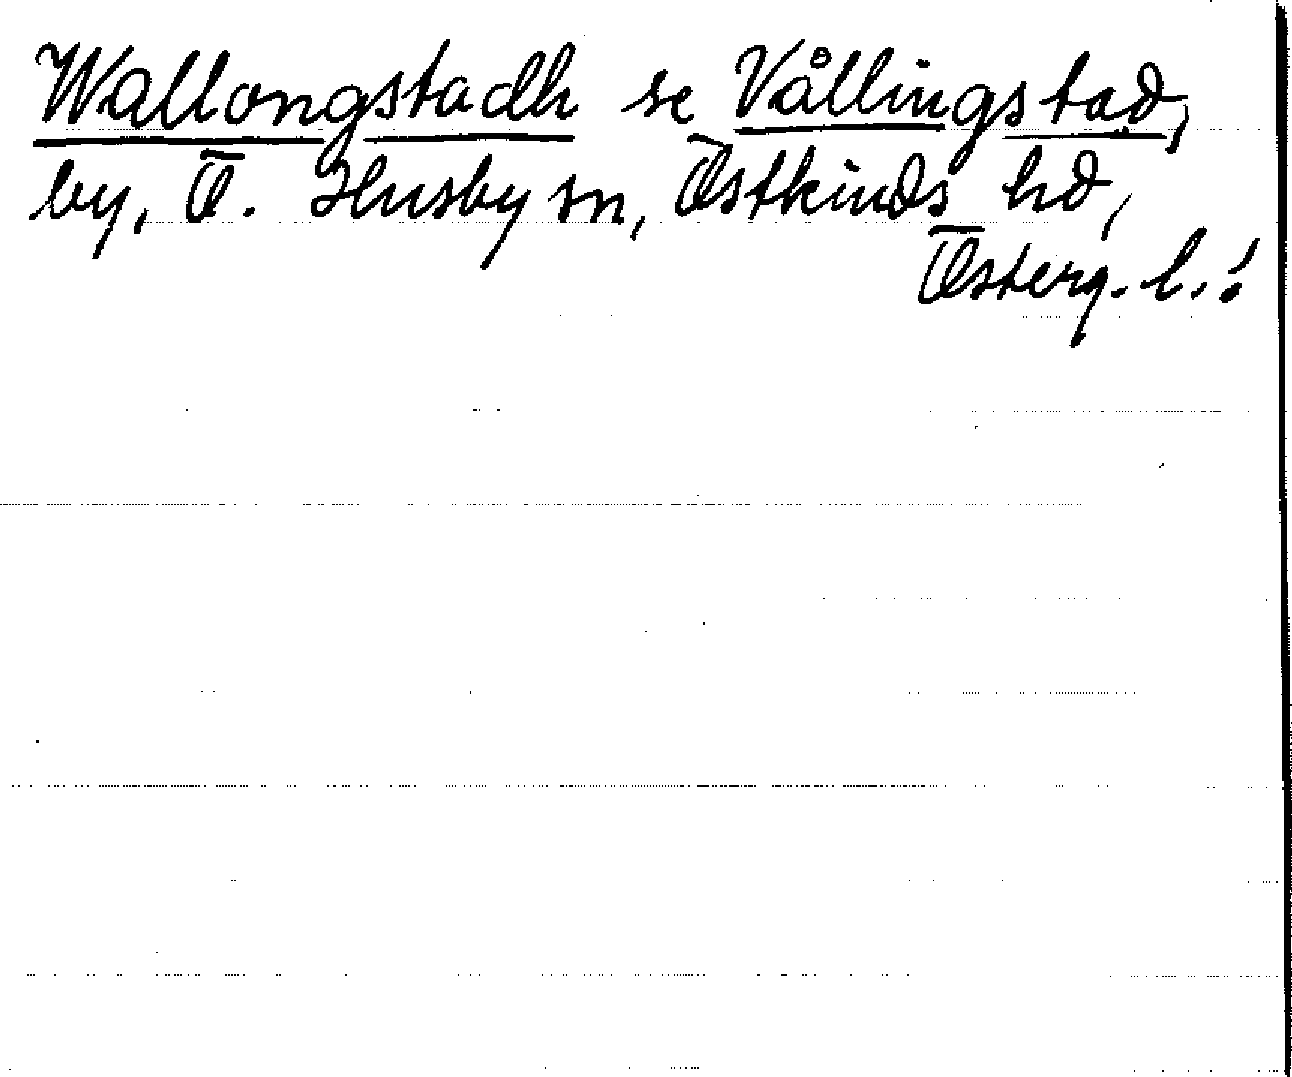 Wallongstadh se Vållingstad,
by, Ö. Husby sn, Östkinds hd,
Österg. l.!